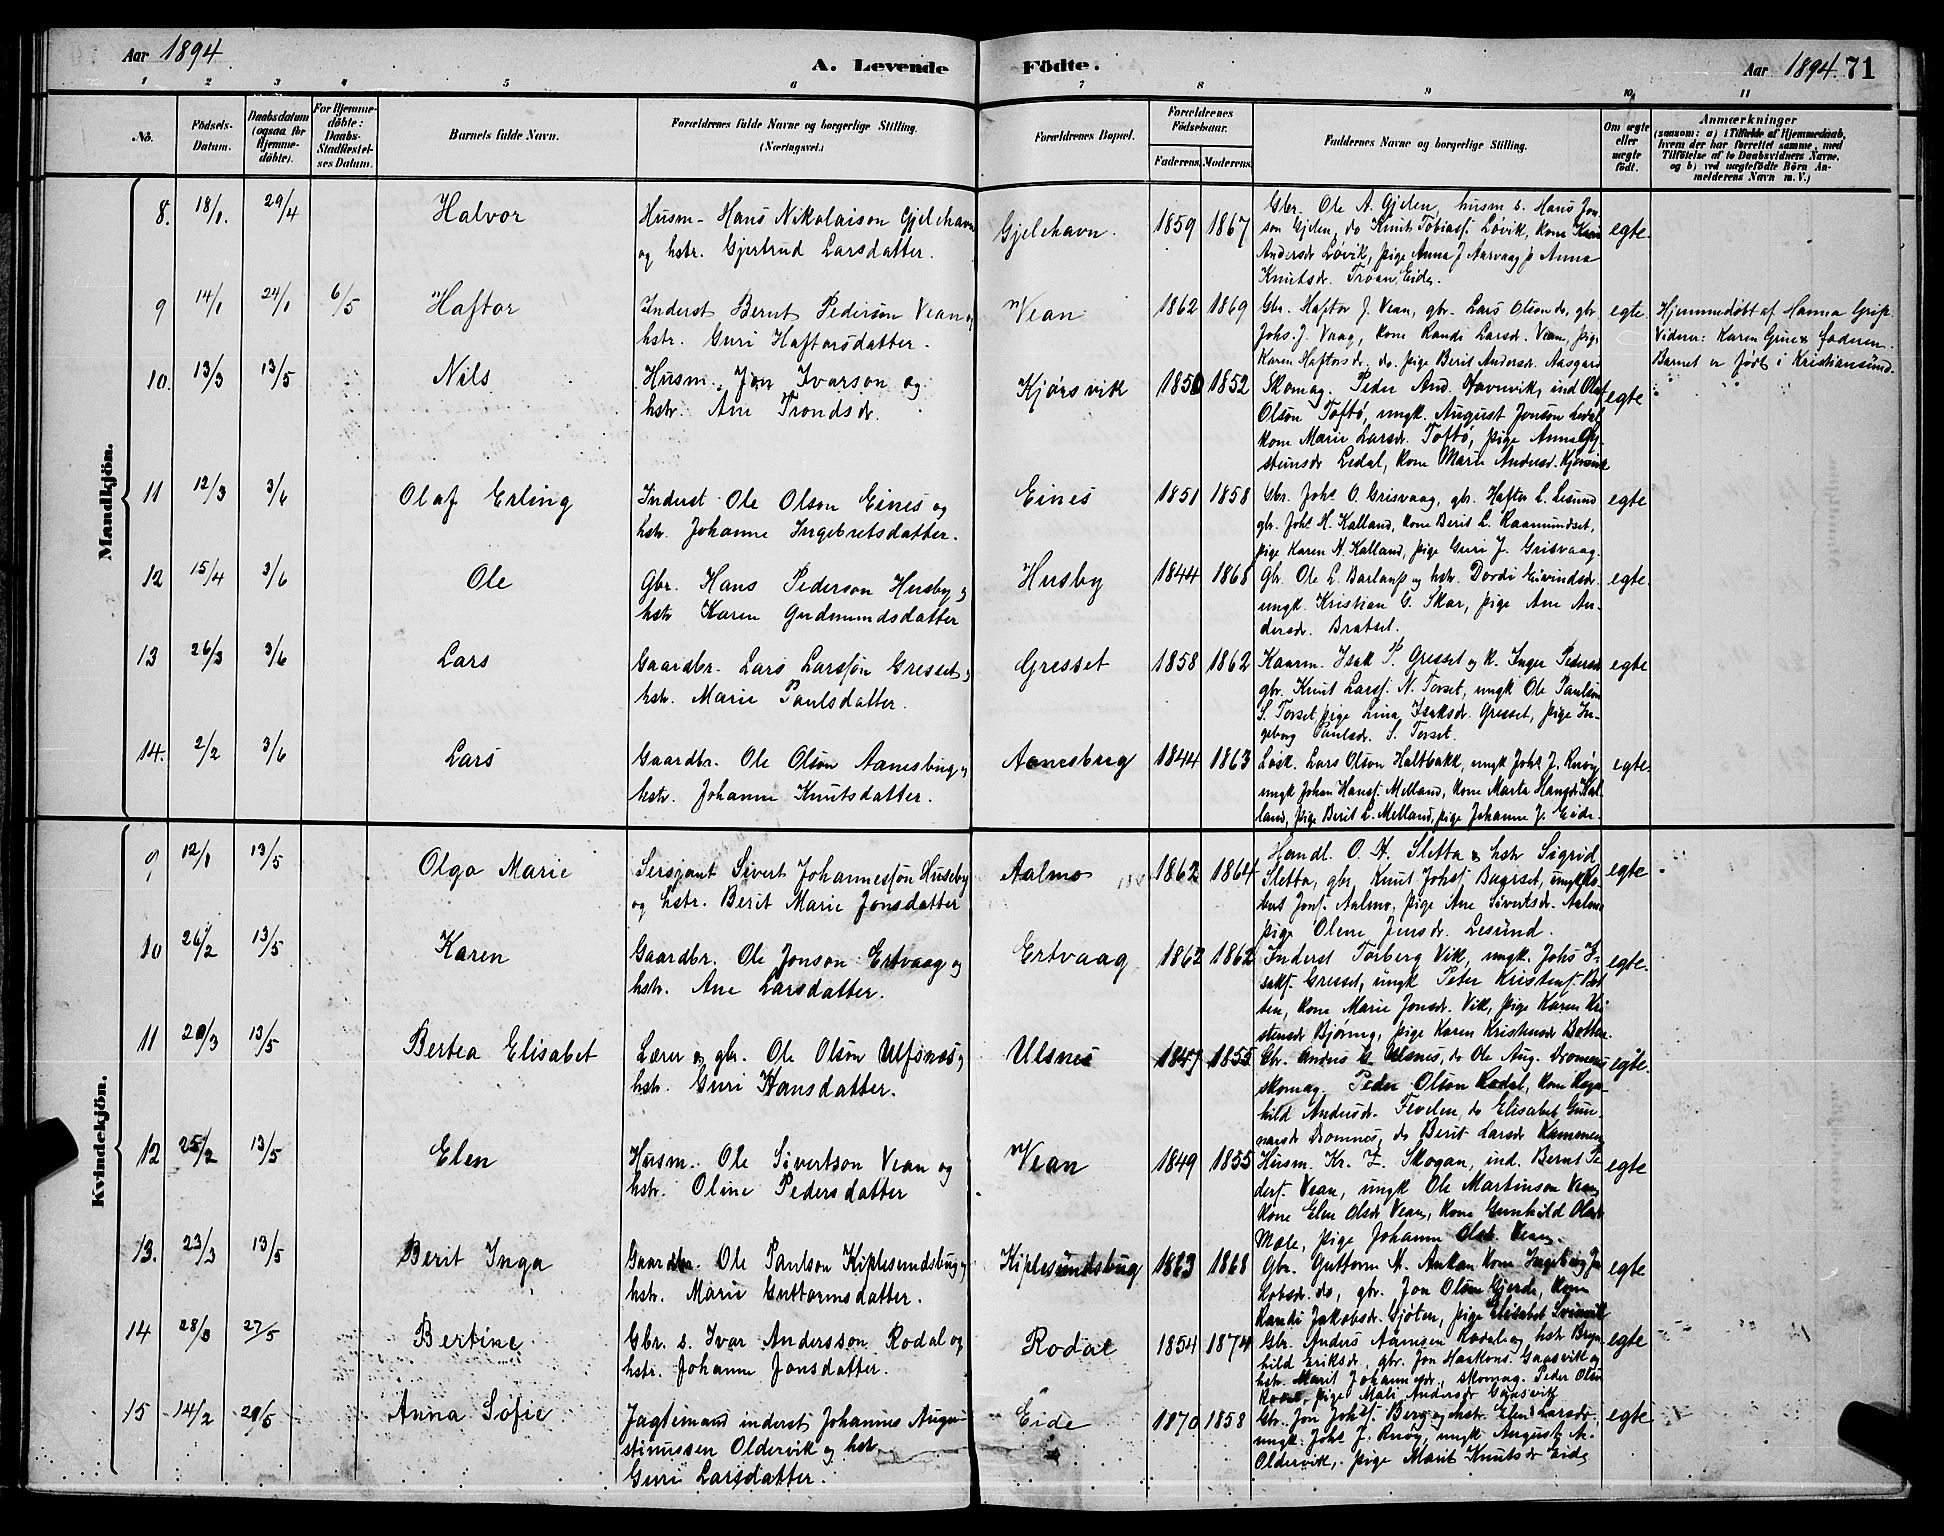 Aar 1894 A. Levende Födte. Aar 1894. 71
1 2 3 4 5 6 7 8 9 10 11
No. Födsels-Datum. Daabsdatum (ogsaa for Hjemme-döbte). For Hjemme-döbte: Daabs-Stadfæstel-ses Datum. Barnets fulde Navn. Forældrenes fulde Navne og borgerlige Stilling. (Næringsvei.) Forældrenes Bopæl. Forældrenes Födselsaar. Faderens. Moderens. Faddernes Navne og borgerlige Stilling. Om ægte eller uægte födt.
Anmærkninger
(saasom: a) i Tilfælde af Hjemmedaab,
hvem der har forrettet samme, med
Tilföielse af to Daabsvidners Navne,
og b) ved uægtefödte Börn An-
melderens Navn m. V.)
Mandkjön.
8. 18/1. 29/4 Halvor
Husm. Hans Nikolaison Gjelehavn
og hstr. Gjertrud Larsdatter.
Gjelehavn. 1859 1867
Gbr. Ole A. Gjelen, husm s. Hans Jon-
son Gjelen, do Knut Tobiasf. Løvik, kone Kari
Andersdr Løvik, pige Anna J Aarvaag p Anna
Knutsdr. Troan Eide.
egte.
9 14/1 24/1 6/5 Haftor
Inderst Bernt Pederson Vean og
hstr. Guri Haftorsdatter.
Vean 1862 1869
Gbr. Haftor J. Vean, gbr. Lars Olson do, gbr
Johs. J. Vaag, kone Randi Larsdr. Vean, pige
Karen Haftorsdr, do, pige Berit Andersdr Aasgard
egte
Hjemmedøbt af Hanna Grip
Vidner: Karen Grip & faderen.
Barnet er født i Kristiansund.
10. 13/3 13/5 Nils
Husm. Jon Ivarson og
hstr. Ane Trondsdr.
Kjørsvik 1850 1852
Skomag. Peder And. Havnvik, ind Olaf
Olson Toftø, ungk. August Jonson Ledal,
kone Marie Larsdr. Toftø, pige Anna Øy-
steinsdr Ledal, kone Marie Andersdr. Kjørsvik
egte
11 12/3 3/6 Olaf Erling
Inderst Ole Olson Eines og
hstr. Johanne Ingebretsdatter.
Eines 1851 1858
Gbr. Johs O. Grisvaag, gbr. Haftor L. Lesund
gbr. Johs H. Kalland, kone Berit L. Raamundset,
pige Karen H. Kalland, pige Guri J. Grisvaag.
egte
12 15/4 3/6 Ole
Gbr. Hans Pederson Husby og
hstr Karen Gudmundsdatter
Husby 1844 1868
Gbr. Ole L. Børlaup og hstr. Dordi Eivindsdr.
ungk. Kristian G. Skar, pige Ane An-
dersdr. Bratset.
egte.
13 26/3 3/6 Lars
Gaardbr. Lars Larsson Gresset og
hstr. Marie Paulsdatter.
Gresset 1858 1862
Kaarm. Isak P. Gresset og k. Inger Pedersdr
gbr. Knut Larsf. N. Torset, ungk Ole Paulson
S. Torset, pige Lina Isaksdr. Gresset, pige In-
geborg Paulsdr. S. Torset.
egte
14. 2/2 3/6 Lars
Gaardbr. Ole Olson Aanesbug og
hstr. Johanne Knutsdatter.
Aanesbug 1844 1863
Løsk. Lars Olson Haltbakk, ungk Johs J. Røvik,
ungk Johan Hansf. Melland, kone Marta Hansdr Kal-
land, pige Berit L. Melland, pige Johanne J. Eide.
egte.
Kvindekjön.
9 12/1 13/5 Olga Marie
Sersjant Sivert Johannesson Huseby
og hstr. Berit Marie Jonsdatter
Aalmo 1862 1864
Handl. O. H. Sletta & hstr Sigrid
Sletta, gbr, Knut Johsf Bugrset, ungk Ro-
bert Jonf. Aalmo, pige Ane Sivertsdr. Aalmo
pige Oline Jensdr. Lesund.
egte
10 26/2 13/5 Karen
Gaardbr. Ole Jonson Ertvaag og
hstr. Ane Larsdatter.
Ertvaag 1862 1862
Inderst Torberg Vik, ungk. Johs I-
sakf. Gresset, ungk Peter Kristenf. Bot-
ten, kone Marie Jonsdr. Vik, pige Karen Kri-
stensdr Bjøring, pige Karen Kristensdr Botten
egte.
11 20/3 13/5 Bertea Elisabet
Lærer og gbr. Ole Olson Ulfsnes og
hstr. Guri Hansdatter.
Ulsnes 1847 1855
Gbr. Anders G. Ulsnes, do Ole Aug. Dromnes
skomag. Peder Olson Rodal, kone Ragn-
hild Andersdr. Fevelen, do Elisabet Gun-
narsdr Dromnes, do Berit Larsdr
egte.
12 25/2 13/5 Elen
Husm. Ole Sivertson Vean og
hstr. Oline Pedersdatter
Vean 1849 1855
Husm. Kr. I. Skogan, ind. Bernt Pe-
dersf. Vean, ungk Ole Martinson Vean
kone Elen Olsdr Vean, kone Gunhild Olsdr
Mole, pige Johanne Olsdr Vean.
egte
13. 23/3 13/5 Berit Inga
Gaardbr. Ole Paulson Kiplesundsbug og
hstr. Marie Guttormsdatter.
Kiplesundsbug 1863 1868
Gbr. Guttorm H. Ankan kone Ingeborg Ja-
kobsdr. do, gbr. Jon Olson Gjerde, kone
Randi Jakobsdr. Sjøten, pige Elisabet Svinvik
egte
14 28/3 27/5 Bertine
Gbr. s. Ivar Andersson Rodal og
hstr. Johanne Jonsdatter.
Rodal 1854 1874
Gbr. Anders Aamsen Rodal og hstr Bryn-
hild Eriksdr, gbr. Jon Haakons. Gaasvik og
hstr. Marit Johannesdr, skomag. Peder Olson
Rodal, pige Mali Andersdr Gaasvik
egte
15 14/2 20/5 Anna Sofie
Jagteimand inderst Johannes Augu-
stinussen Oldervik og hstr.
Guri Larsdatter.
Eide 1870 1858
Gbr. Jon Johsf. Berg og hstr. Elen Larsdr,
ungk. Johs J. Røvik, ungk August A.
Oldervik, pige Marit Knutsdr Eide
egte